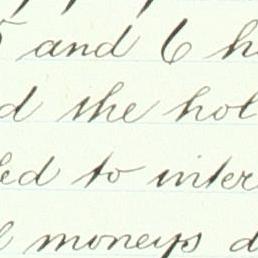 5 and 6 h
d the hol
ed to inter
moneys d